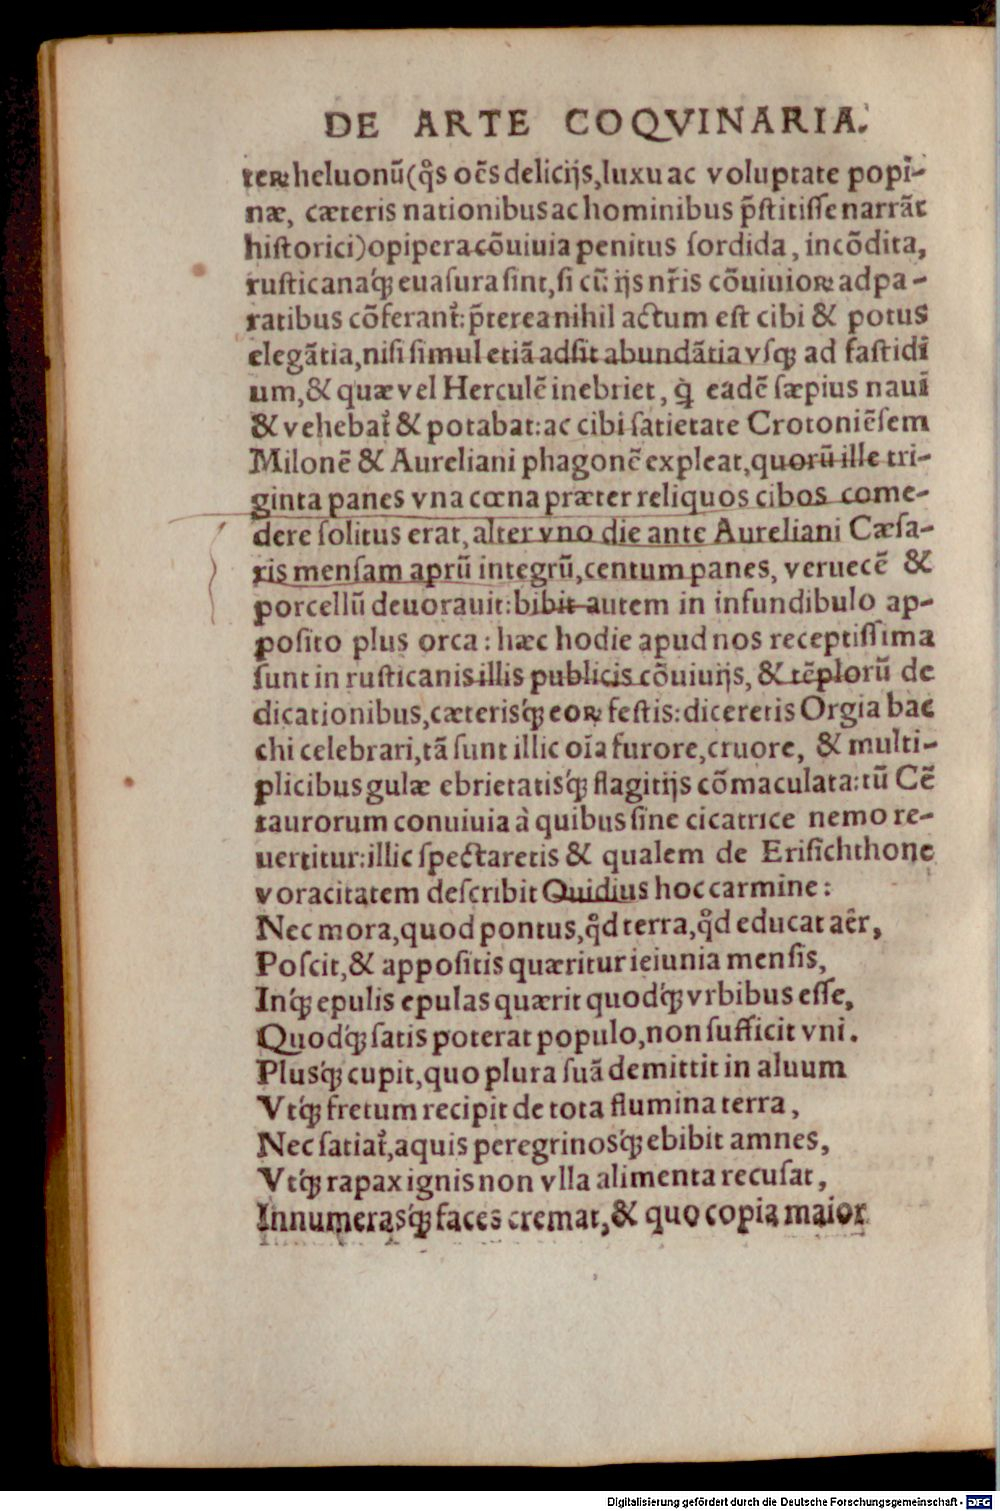 DE ARTE COQVINARIA.
teꝝ heluonũ (q̃s oẽs delicijs, luxu ac voluptate popi-
næ, cæteris nationibus ac hominibus p̃stitisse narrãt
historici) opipera cõuiuia penitus sordida, incõdita,
rusticanaq́ꝫ euasura sint, si cũ ijs nr̃is cõuiuioꝝ adpa-
ratibus cõferant᷑: p̃terea nihil actum est cibi & potus
elegãtia, nisi simul etiã adsit abundãtia vsqꝫ ad fastidĩ
um, & quæ vel Herculẽ inebriet, q̃ eadẽ sæpius nauĩ
& vehebat᷑ & potabat: ac cibi satietate Crotoniẽsem
Milonẽ & Aureliani phagonẽ expleat, quorũ ille tri-
ginta panes vna cœna præter reliquos cibos come-
dere solitus erat, alter vno die ante Aureliani Cæsa-
ris mensam aprũ integrũ, centum panes, veruecẽ &
porcellũ deuorauit: bibit autem in infundibulo ap-
posito plus orca: hæc hodie apud nos receptissima
sunt in rusticanis illis publicis cõuiuijs, & tẽplorũ de
dicationibus, cæterisq́ꝫ eoꝝ festis: diceretis Orgia bac
chi celebrari, tã sunt illic oĩa furore, cruore, & multi-
plicibus gulæ ebrietatisq́ꝫ flagitijs cõmaculata: tũ Cẽ
taurorum conuiuia à quibus sine cicatrice nemo re-
uertitur: illic spectaretis & qualem de Erisichthone
voracitatem describit Ouidius hoc carmine:
Nec mora, quod pontus, qđ terra, qđ educat aêr,
Poscit, & appositis quæritur ieiunia mensis,
Inq́ꝫ epulis epulas quærit quodq́ꝫ vrbibus esse,
Quodq́ꝫ satis poterat populo, non sufficit vni.
Plusq́ꝫ cupit, quo plura suã demittit in aluum
Vtq́ꝫ fretum recipit de tota flumina terra,
Nec satiat᷑, aquis peregrinosq́ꝫ ebibit amnes,
Vtq́ꝫ rapax ignis non vlla alimenta recusat,
Innumerasq́ꝫ faces cremat, & quo copia maior
Digitalisierung gefördert durch die Deutsche Forschungsgemeinschaft - DFG